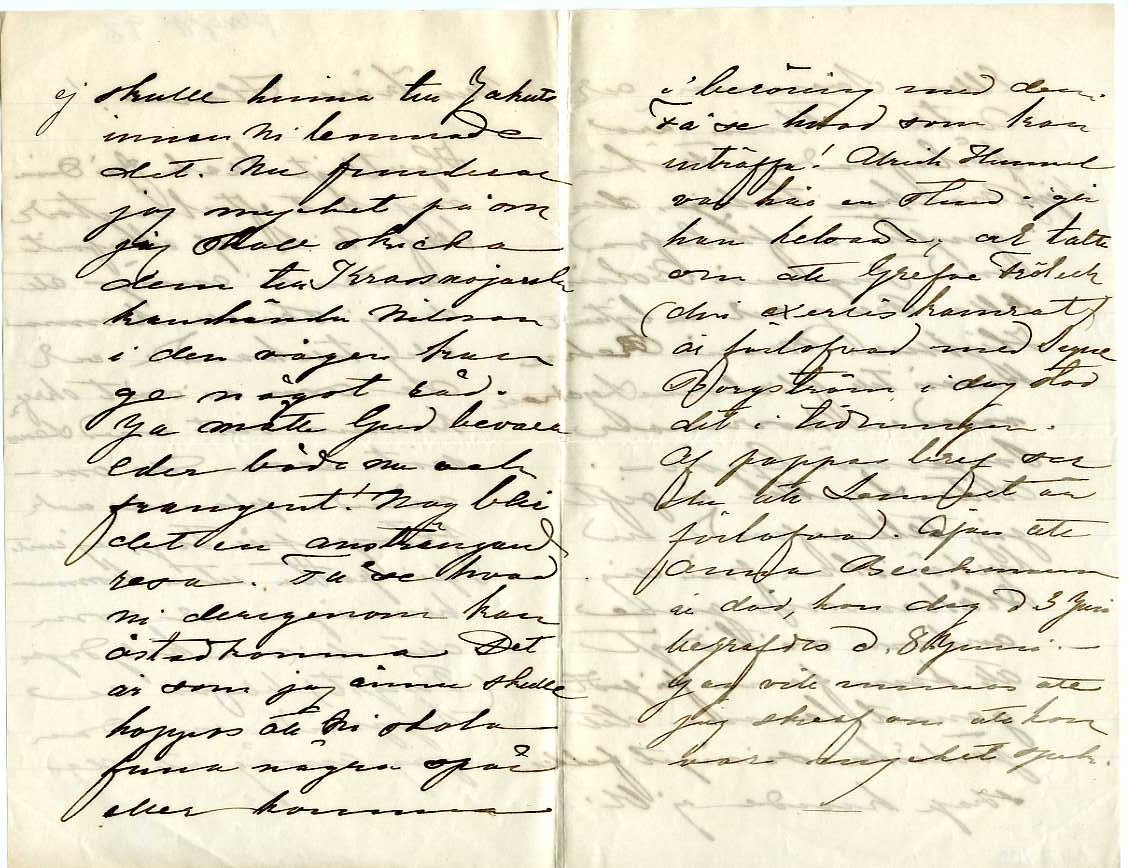 ej skulle hinna till Jakuts
innan Ni lemnade
det. Nu funderar
jag mycket på om
jag skall skicka
dem till Krasnojarsk
kanhända Nilsson
i den vägen kan
ge något råd.
Ja måtte Gud bevara
Eder både nu och
framgent! Nog blir
det en ansträngand
resa. Få se hvad
ni derigenom kan
åstadkomma Det
är som jag ännu skulle
hoppas att Ni skola
finna några spår
eller komma
i beröring med dem.
Få se hvad som kan
inträffa! Ulrich Hummel
var här en stund i går
han helsade, och talte
om att Grefve Frölich
(din exercis kamrat)
är förlofvad med Signe
Borgström, i dag stod
det i tidningen.
Af pappas bref ser
du att är
förlofvad. Äfvan att
Anna Beckman
är död, hon dog d 3 Juni
begrafdes d. 8 Juni. —
Jag vill minnas att
jag skref om att hon
var mycket sjuk.